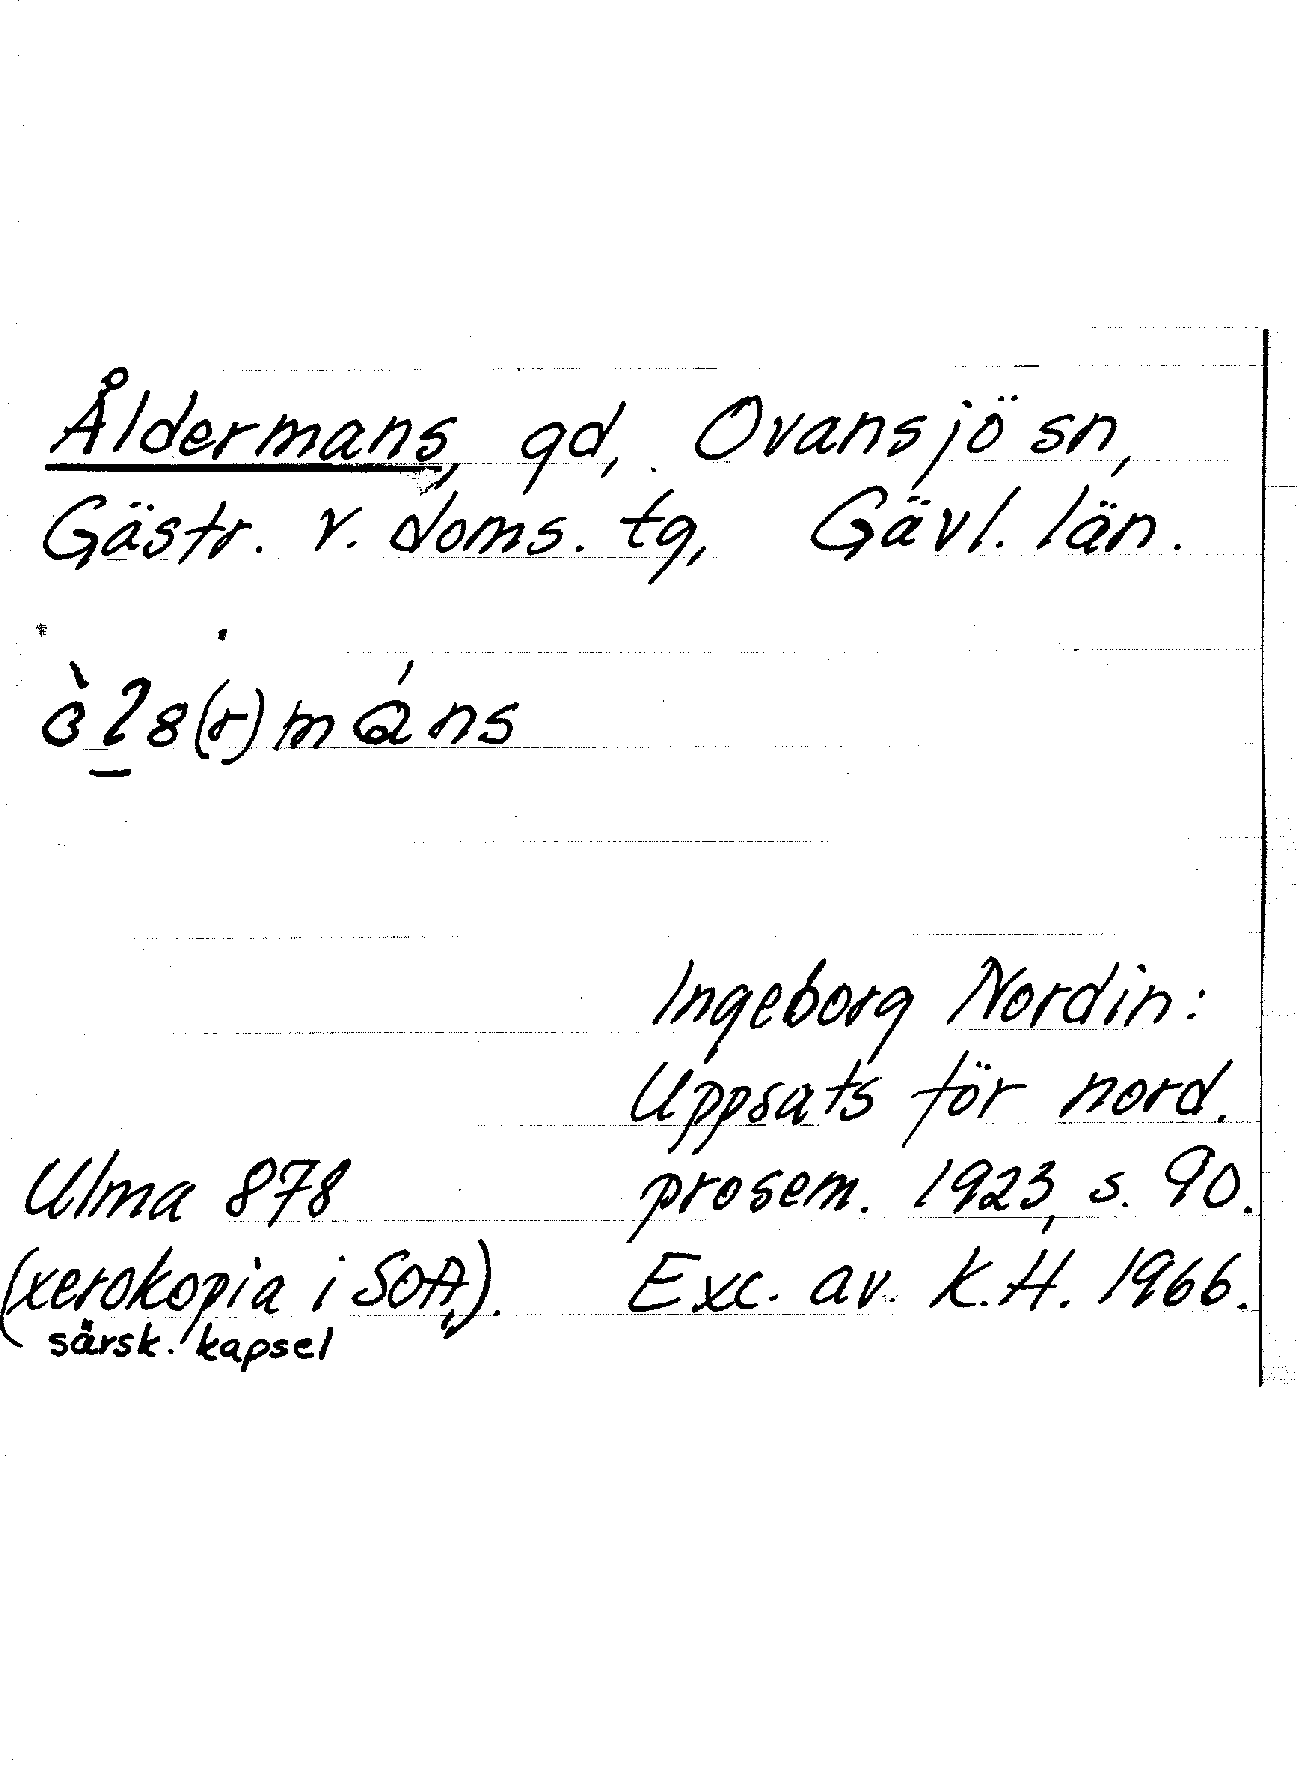 Åldermans, gd, Ovansjö sn,
Gästr. v. doms. tg, Gävl. län.
Ingeborg Nordin:
Uppsats för nord.
Ulma 878 prosem. 1923, s. 90.
(xerokopia i SOA,). Exc. av. K.H. 1966.
särsk. kapsel